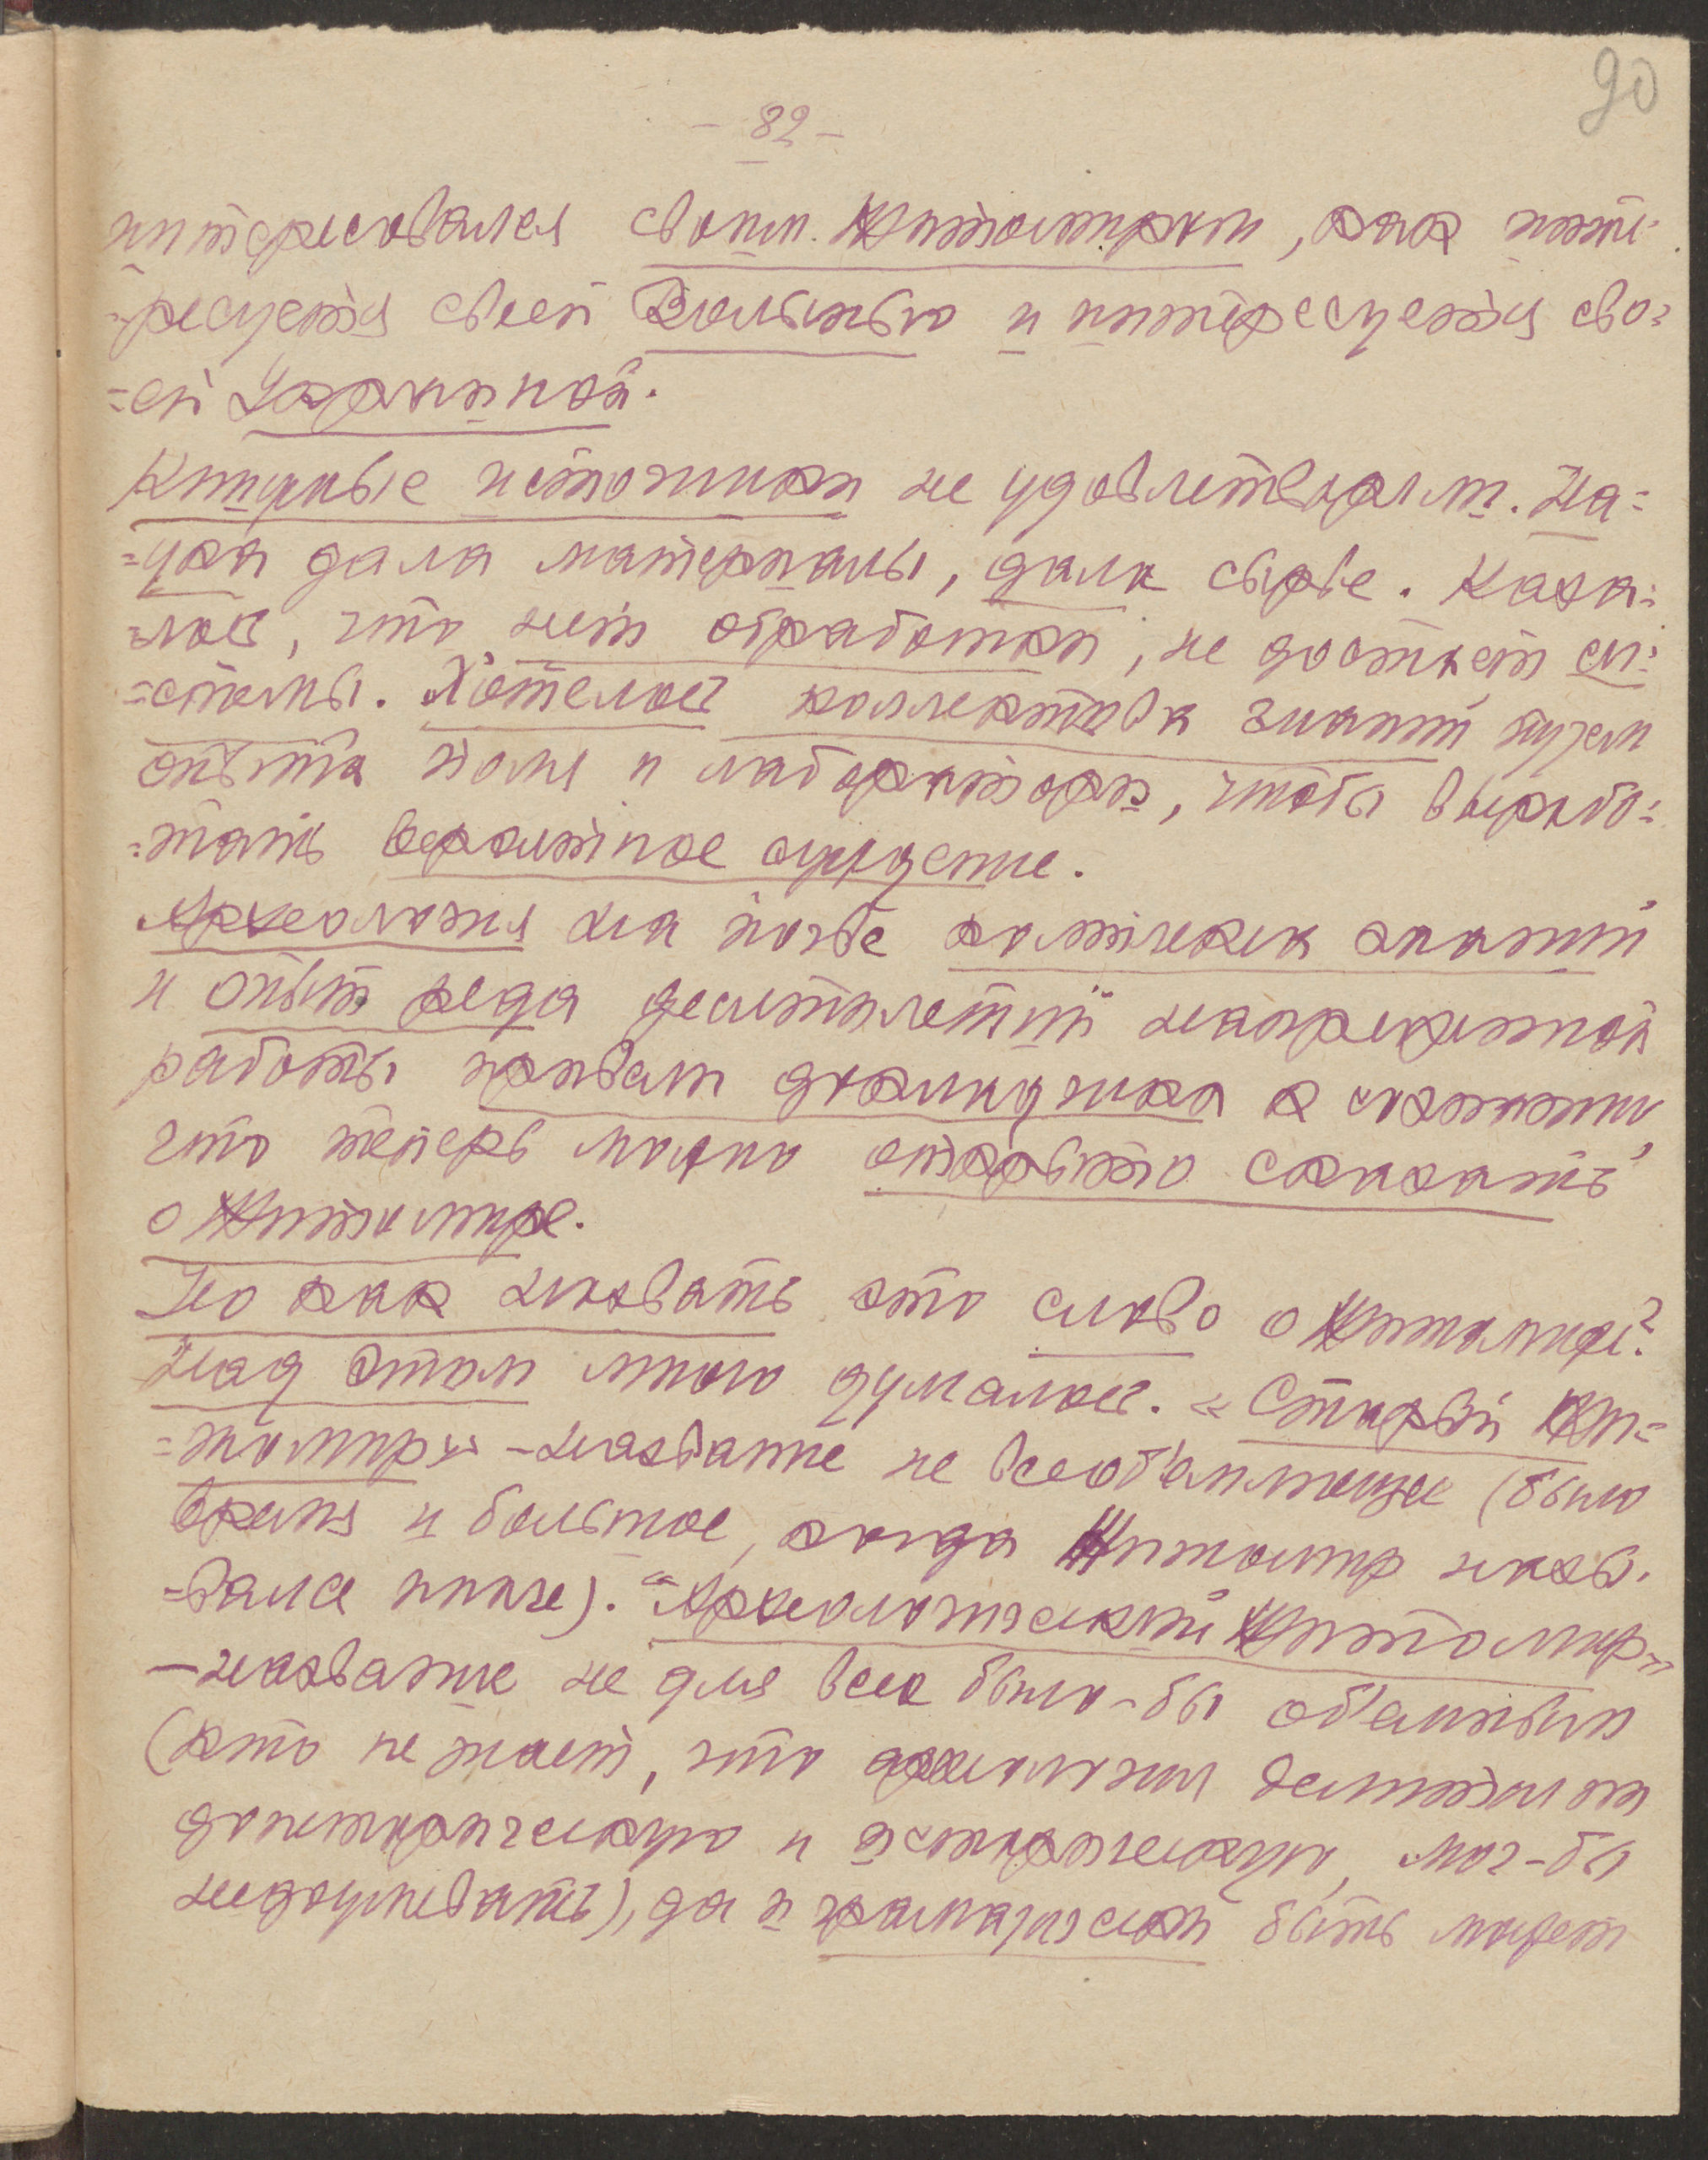 90
- 82 -
интересовался своим Житомиром, как инте-
=ресуется своей Волынью и интересуется сво=
=ей Украиной.
Книжные источники не удовлетворяли. На=
=ука дала материалы, дала сырье. Каза=
=лось, что нет обработки, не достает си=
=стемы. Хотелось коллектива знаний путем
опыта поля и лаборатори, чтобы вырабо=
=тать вероятное суждение.
Археология на почве комплекса знаний
и опыт ряда десятилетий напряженной
работы привели к сказанию
что теперь можно открыто сказать
о Житомире.
Но как назвать это слово о Житомире?
Над этим много думалось. «Старый Жи=
=томир» - название не всеоб'емлющее (было
время и большое, когда Житомир назы-
=вался иначе). "Археологический Житомир"
- название не для всех было-бы об'емным
(кто не знает, что археология
доисторическую и историческую, мог-бы
недоумевать), да и быть может